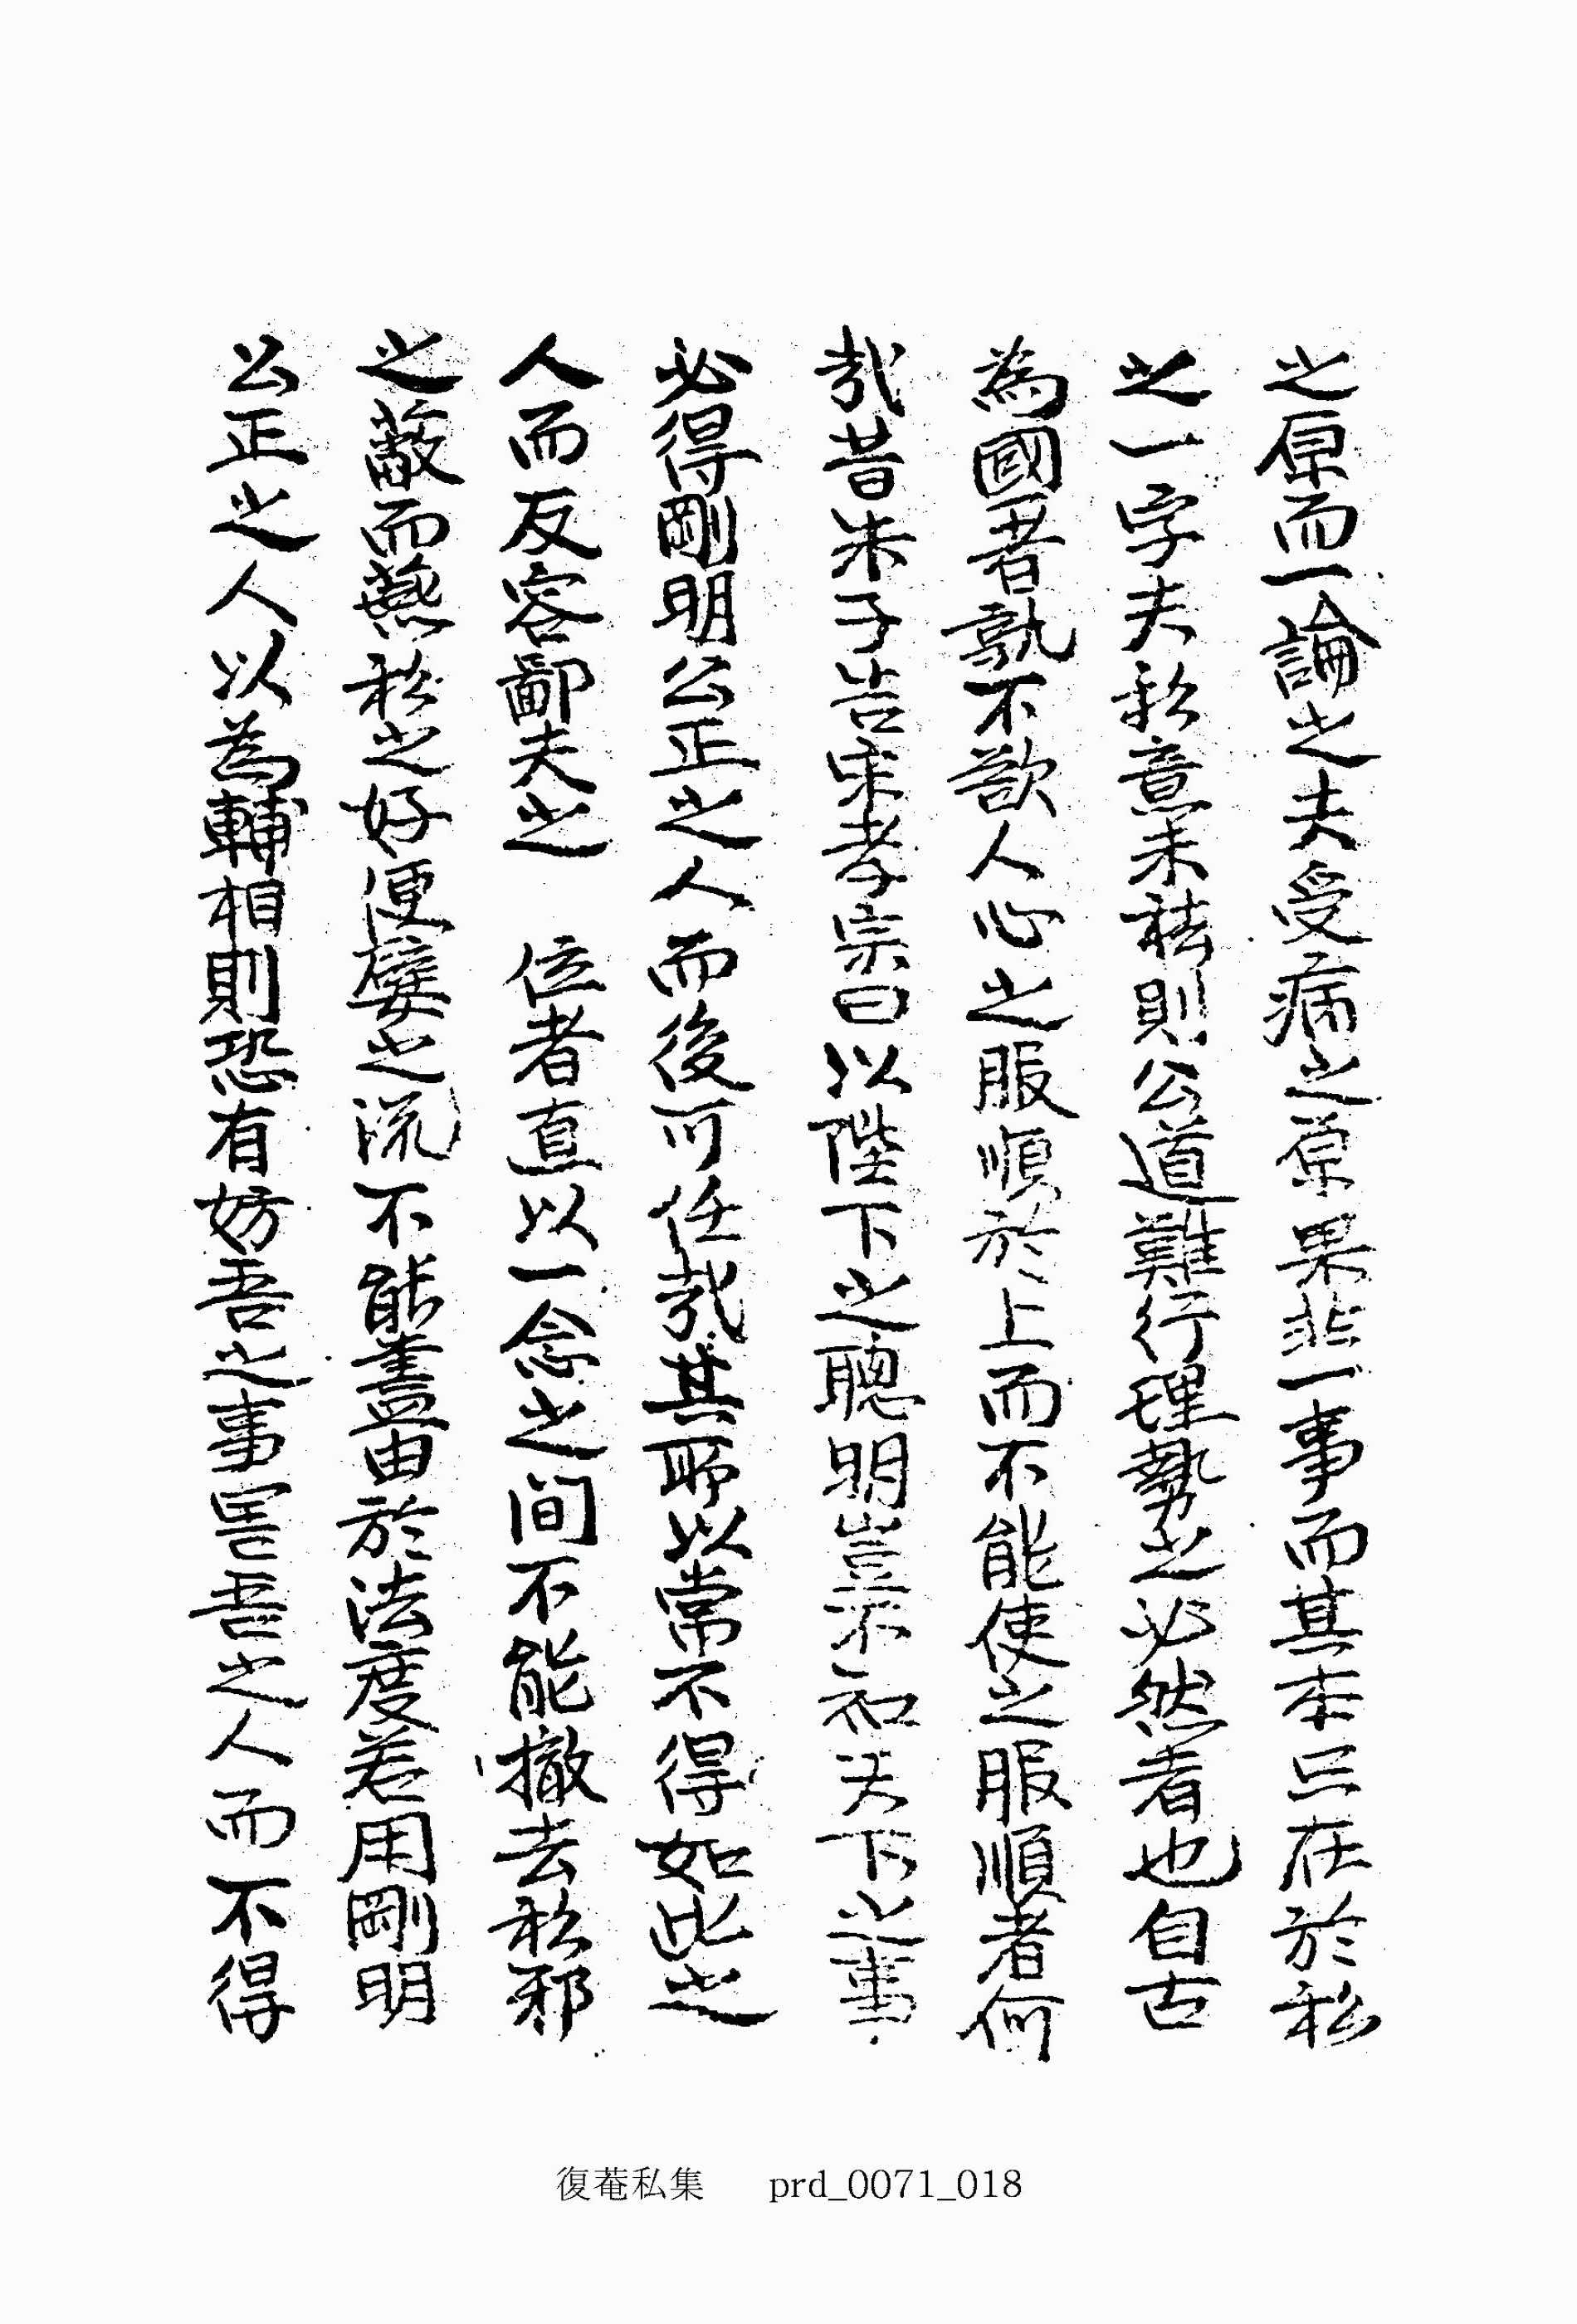 之原而一論之夫受病之原果非一事而其本只在於私
之一字夫私意未祛則公道難行理勢之必然者也自古
為國者孰不欲人心之服順於上而不能使之服順者何
哉昔朱子告宋孝宗曰以陛下之聰明豈不知天下之事
必得剛明公正之人而後可任哉其所以常不得如此之
人而反容鄙夫之 位者直以一念之间不能撤去私邪
之蔽而燕私之好便嬖之流不能盡由於法度若用剛明
公正之人以為輔相則恐有妨吾之事害吾之人而不得
復菴私集 prd_0071_018